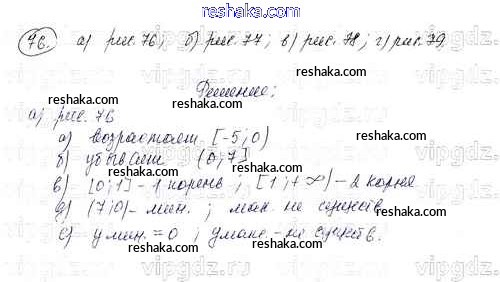 reshaka.com
76. а) рис. 76; б) рис. 77; в) рис. 78; г) рис. 79.
reshaka.com reshaka.com
Решение:
reshaka.com
а) рис. 76
reshaka.com
а) возрастает [-5; 0)
reshaka.com
б) убывает (0; 7]
reshaka.com reshaka.com
в) [0; 1] - 1 корень; [1; +∞) - 2 корня
д) (7; 0) - мин. ; мак. не существ.
reshaka.com reshaka.com
е) y мин. = 0 ; y макс. - не существ.
reshaka.com